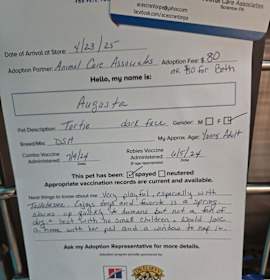 Animal Care Associates
Date of Arrival at Store: 4/23/25
Adoption Partner: Animal Care Associates Adoption Fee: $80
or $130 for Both
Hello, my name is:
Augusta
Pet Description: Tortie dark face Gender: M F
Breed/Mix: DSH My Approx. Age: Young Adult
Combo Vaccine Administered: Rabies Vaccine Administered: 6/5/24
If age appropriate
Date Date
This pet has been: spayed neutered
Appropriate vaccination records are current and available.
Neat things to know about me: Very playful, especially with
Enjoys dogs and favorite is a spring.
Warms up quickly to humans but not a fan of
dogs. best with no small children. Would love
a home with her pal and a window to nap in.
Ask my Adoption Representative for more details.
Adoption program proudly sponsored by:
Hill's